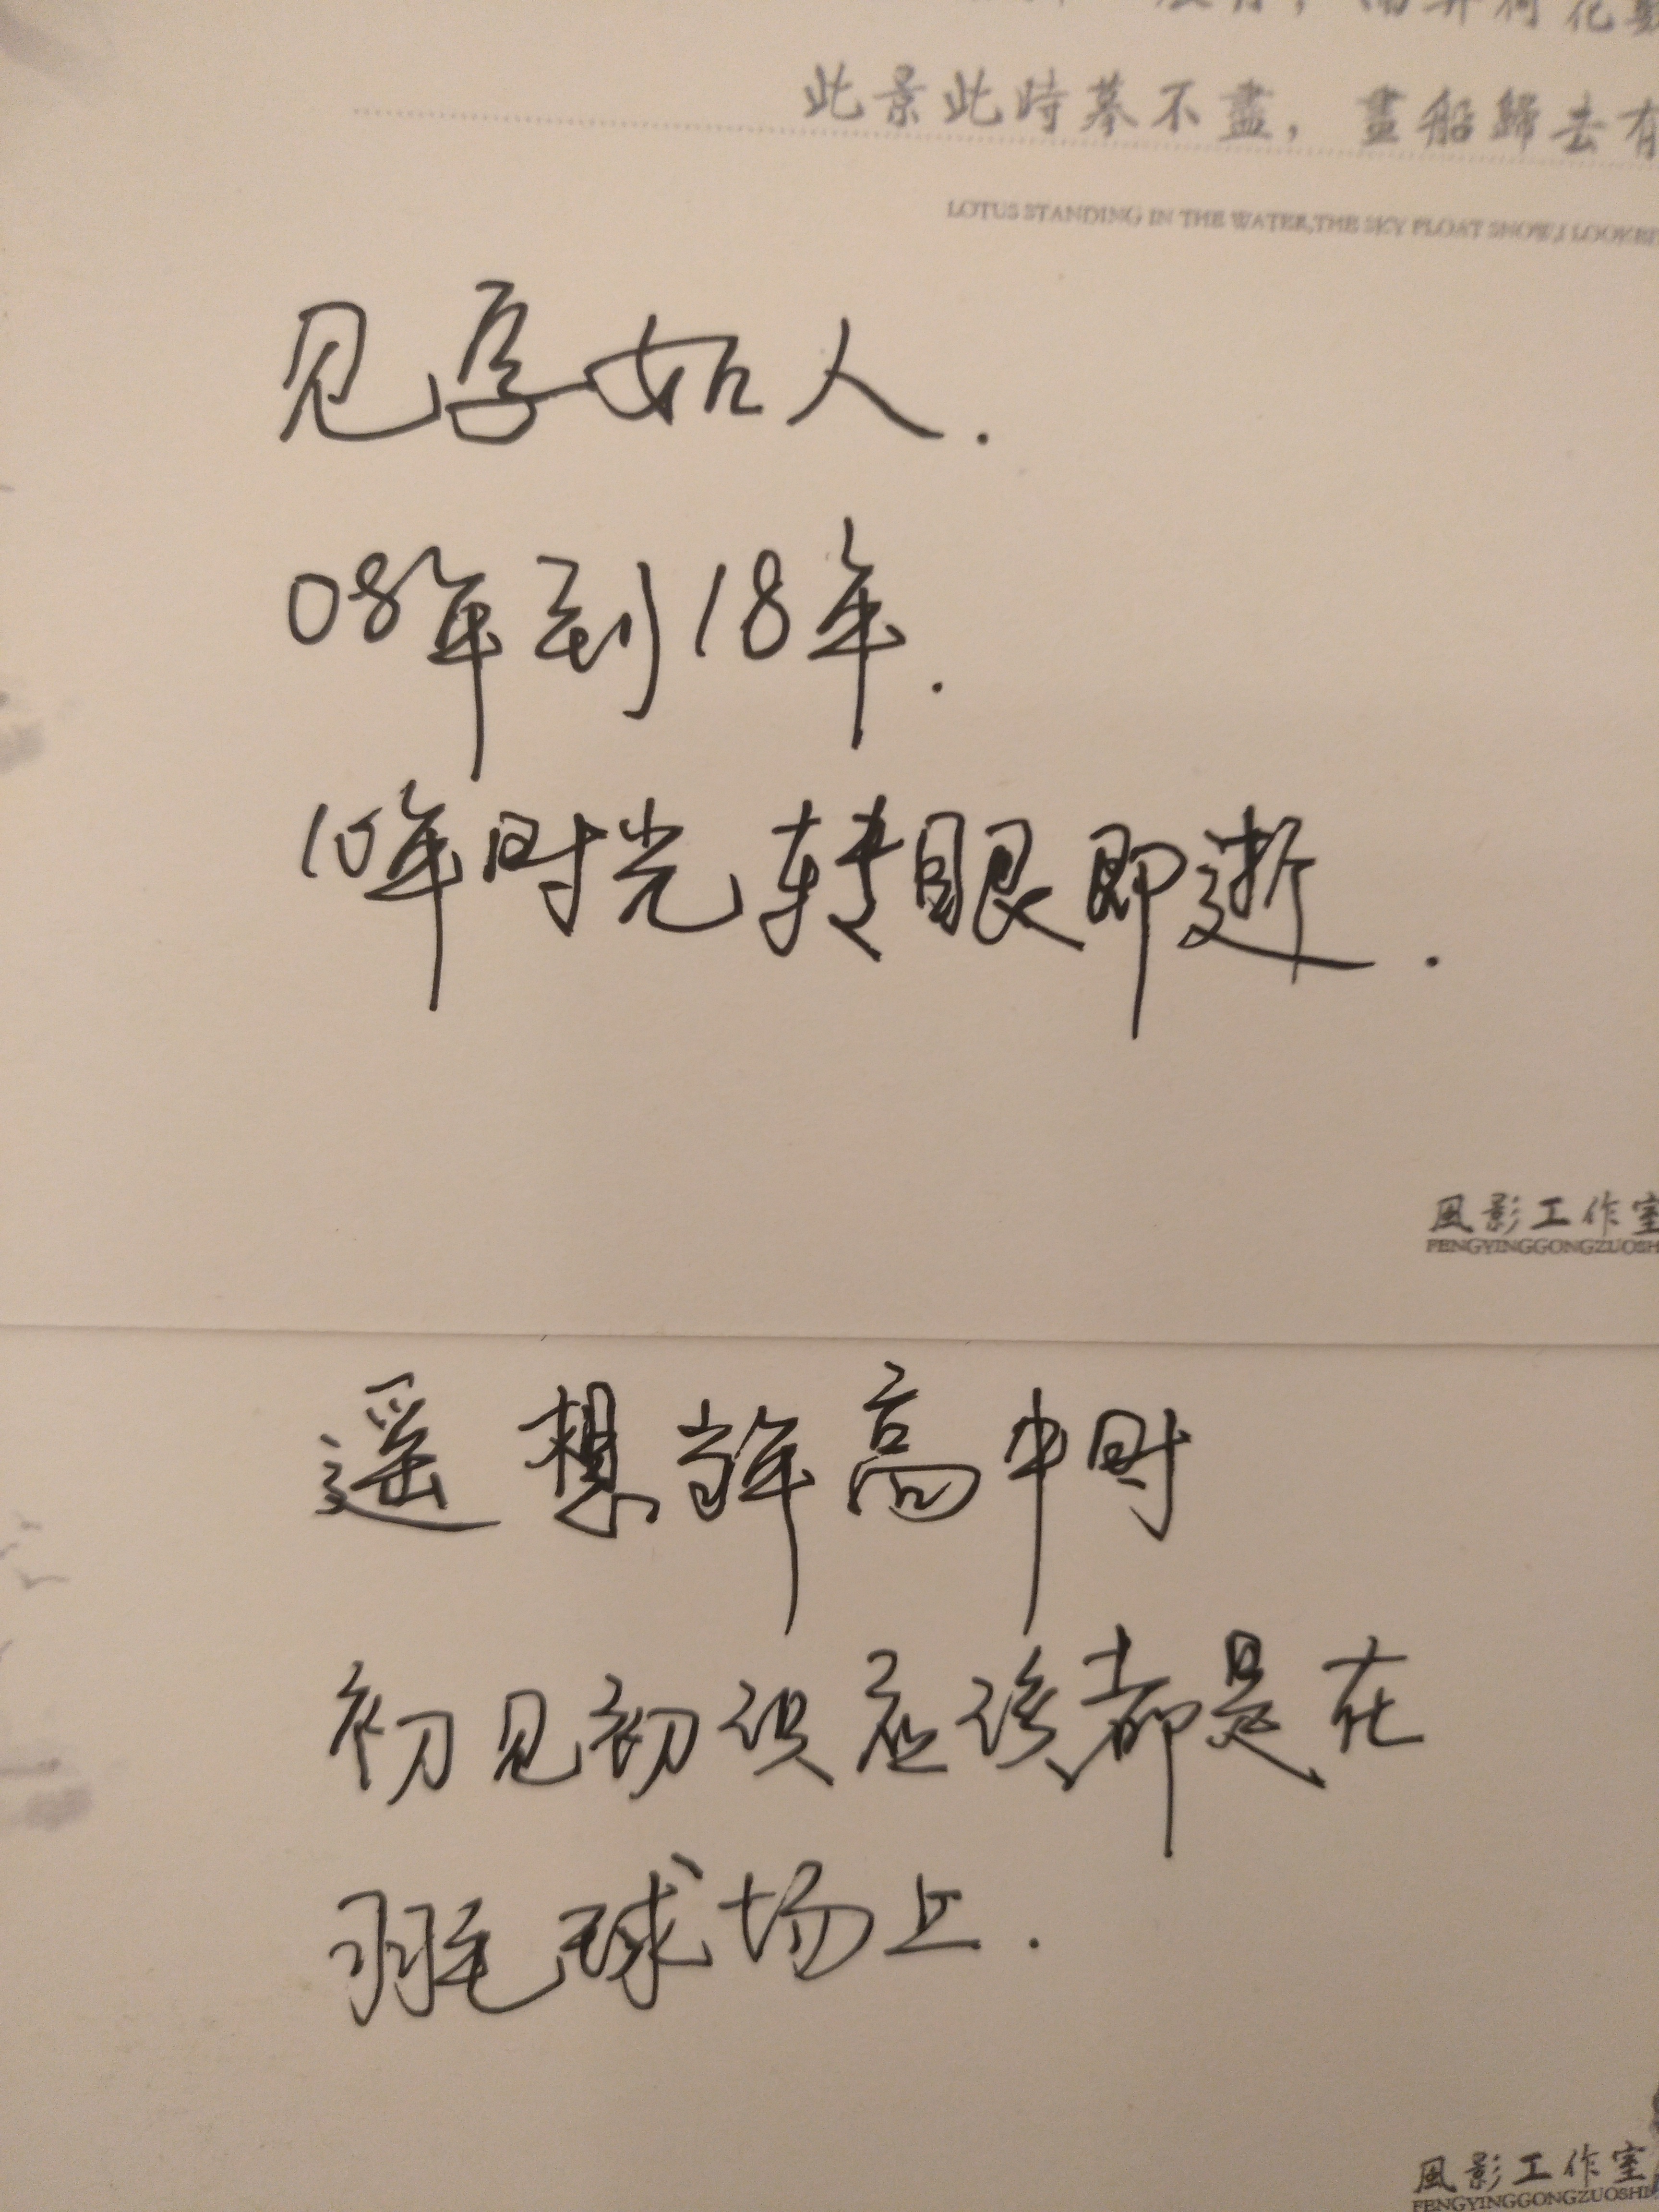 此景此時摹不盡，畫船歸去有
LOTUS STANDING IN THE WATER,THE SKY FLOAT SNOW,I LOOK
见字如人.
08年到18年.
10年时光转眼即逝.
風影工作室
FENGYINGGONGZUOSH
遥想当年高中时
初见初识应该都是在
羽毛球场上.
風影工作室
FENGYINGGONGZUOSHI